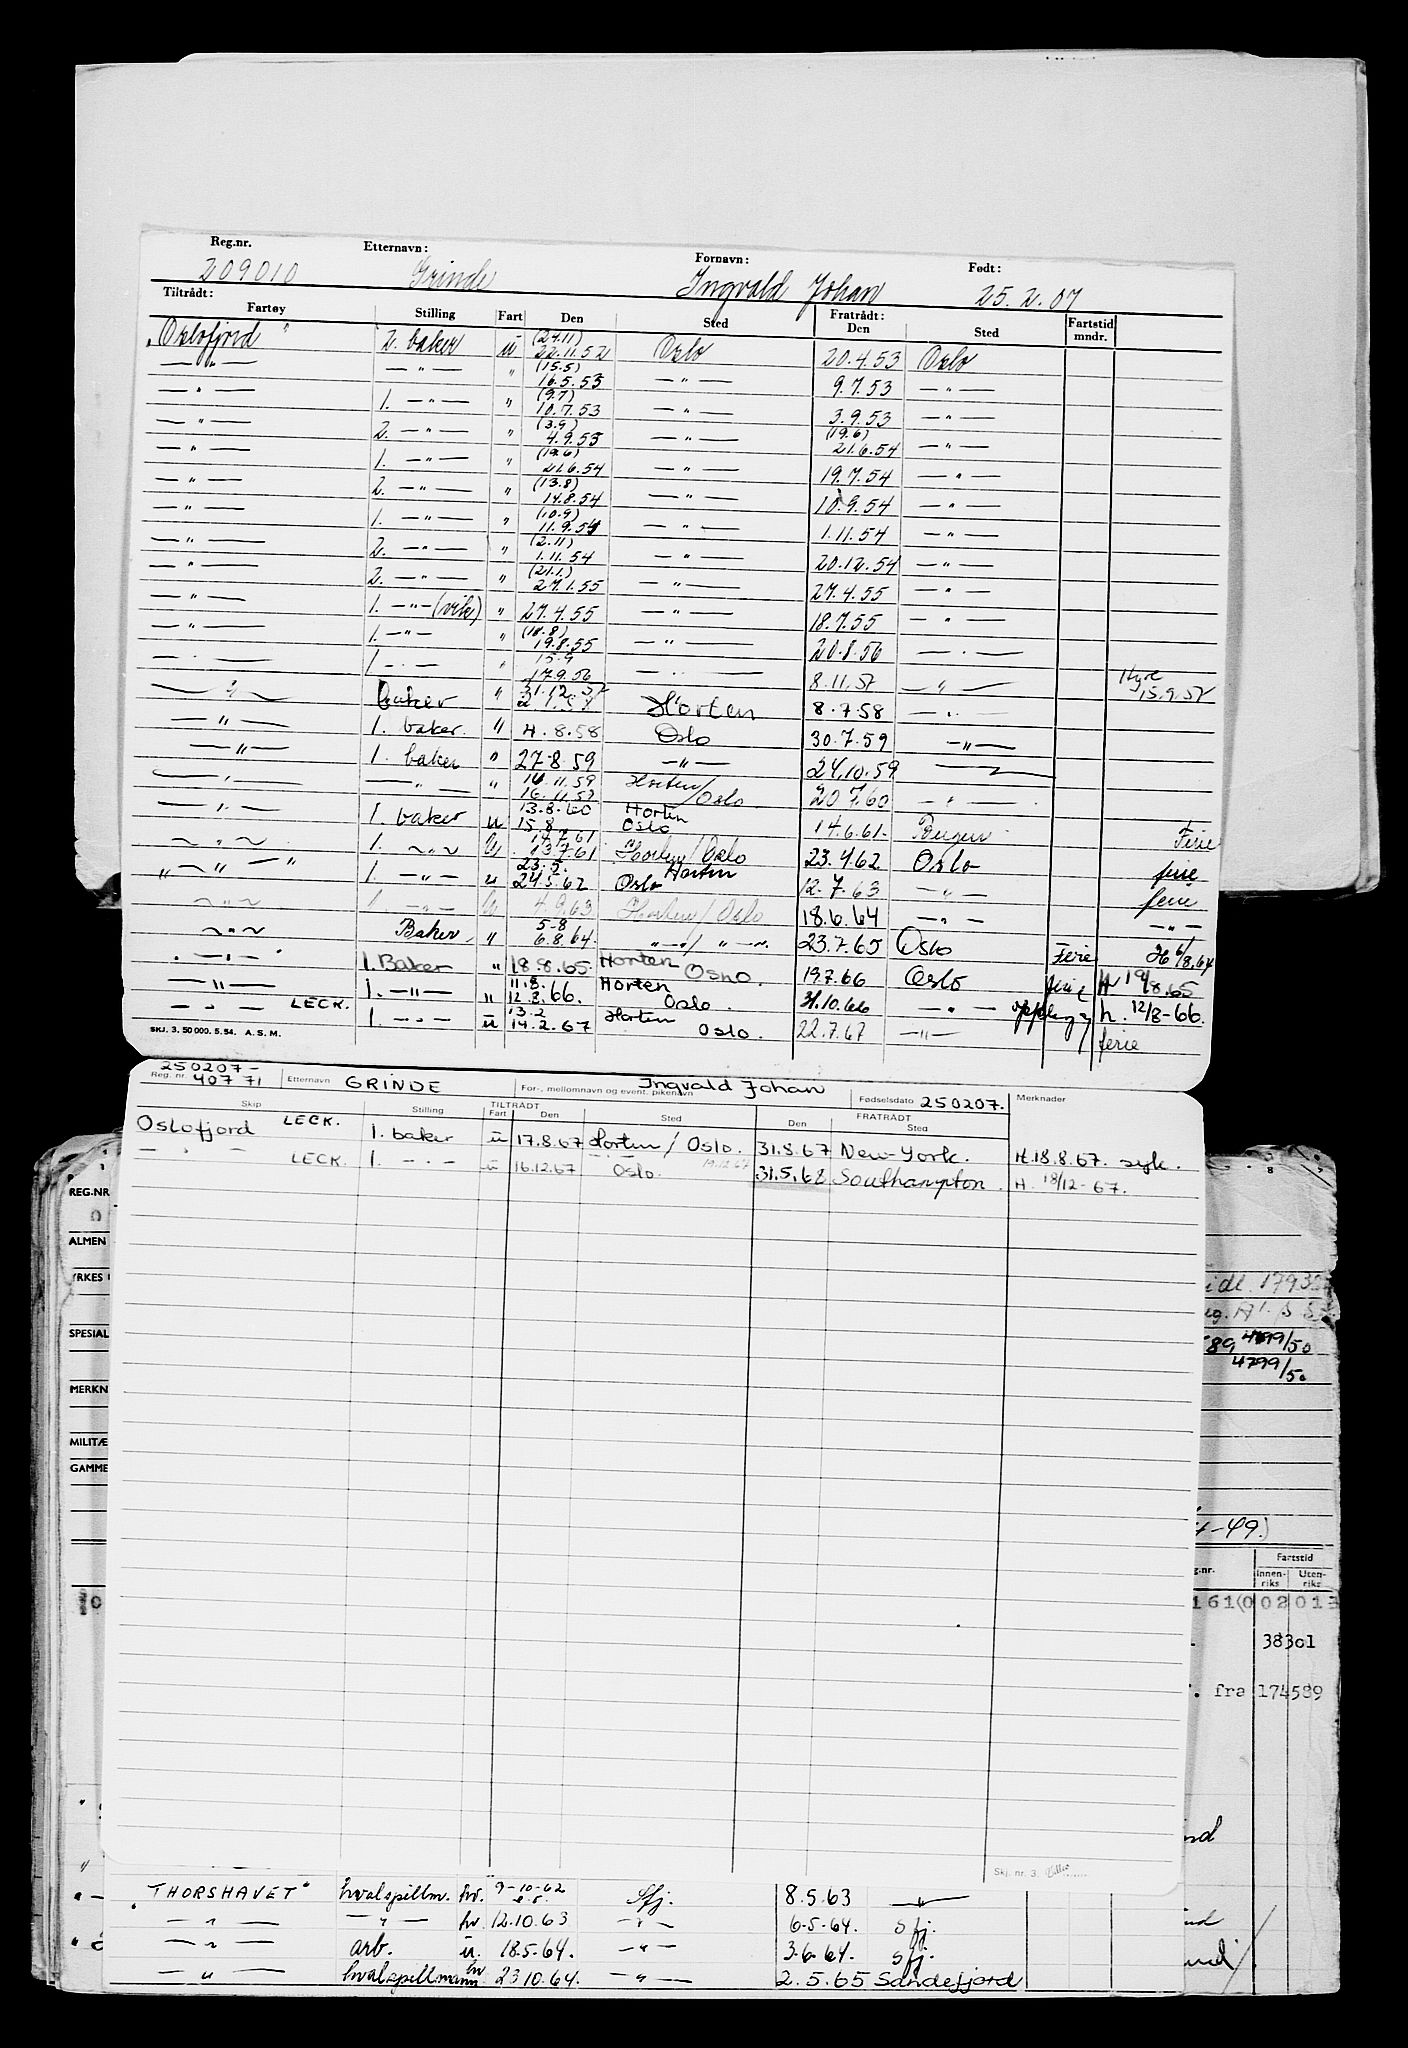 Reg.nr. Etternavn: Fornavn: Født:
209010 Grinde Ingvald Johan 25.2.07
Tiltrådt: Fratrådt:
Fartøy Stilling Fart Den Sted Den Sted Fartstid mndr.
"Oslofjord" 2. baker u (24.11) 22.11.52 Oslo 20.4.53 Oslo
— " — — " — " (15.5) 16.5.53 — " — 9.7.53 — " —
— " — 1. — " — " (9.7) 10.7.53 — " — 3.9.53 — " —
— " — 2. — " — " (3.9) 4.9.53 — " — (19.6) 21.6.54 — " —
— " — 1. — " — " (19.6) 21.6.54 — " — 19.7.54 — " —
— " — 2. — " — " (13.8) 14.8.54 — " — 10.9.54 — " —
— " — 1. — " — " (10.9) 11.9.54 — " — 1.11.54 — " —
— " — 2. — " — " (2.11) 1.11.54 — " — 20.12.54 — " —
— " — 2. — " — " (21.1.) 27.1.55 — " — 27.4.55 — " —
— " — 1. — " — (vik) " 27.4.55 — " — 18.7.55 — " —
— " — 1. — " — " (18.8) 19.8.55 — " — 20.8.56 — " —
— " — 1 — " — " 15.9 17.9.56 — " — 8.11.57 — " — Hyre 15.9.57
— " — baker " 31.12.57 Horten 8.7.58 — " —
— " — 1. baker. " 4.8.58 Oslo 30.7.59 — " —
— " — 1. baker " 27.8.59 — " — 24.10.59
— " — — " — " 14.11.59 16.11.59 Horten/Oslo. 20.7.60 — " —
— " — 1. baker u 13.8.60 15.8 Horten Oslo 14.6.61. Bergen Ferie
— " — 1. — " — u 14.7.61 13.7.61 Horten/Oslo 23.4.62 Oslo ferie
— " — 1. — " — u 23.5. 24.5.62 Horten Oslo 12.7.63 — " — ferie
— " — 1. — " — u 4.9.63 Horten/Oslo 18.6.64 — " — — " —
— " — Baker " 5-8 6.8.64. — " — 23.7.65 Oslo Ferie H 6/8.64
— " — 1. Baker " 18.8.65. Horten Oslo. 19.7.66 Oslo ferie H 19/8.65
— " — 1. — " — " 11.8. 12.8.66. Horten Oslo. 31.10.66 — " — h. 12/8-66.
— " — LECK. 1. — " — u 13.2 14.2.67 Horten Oslo. 22.7.67 — " — ferie
SKJ. 3. 50 000. 5. 54. A. S. M.
250207-
Reg. nr. 40771 Etternavn GRINDE For-, mellomnavn og event. pikenavn Ingvald Johan Fødselsdato 250207. Merknader
TILTRÅDT FRATRÅDT
Skip Stilling Fart Den Sted Den Sted
Oslofjord LECK. 1. baker u 17.8.67 Horten/Oslo. 31.8.67 New-York. H. 18.8.67. syk.
— " — LECK. 1. — " — u 16.12.67 Oslo. 19.12.67 31.5.68 Southampton. H. 18/12-67.
Skj. nr. 3.
REG.NR
ALMEN
YRKES
SPESIAL
MERKN
MILITÆ
GAMME
idl. 1793
89, 4799/50
4799/50
-49.)
Fartstid
g.nr. Innenriks Utenriks
161 (0 02 013
38301
. fra 174589
"THORSHAVET" hvalspillm. hv. 9-10-62 Sfj. 8.5.63 — " —
— " — — " — hv. 12.10.63 — " — 6-5-64. Sfj.
— " — arb. u. 18.5.64. — " — 3.6.64. Sfj.
— " — hvalspillmann hv 23.10.64. — " — 2.5.65 Sandefjord